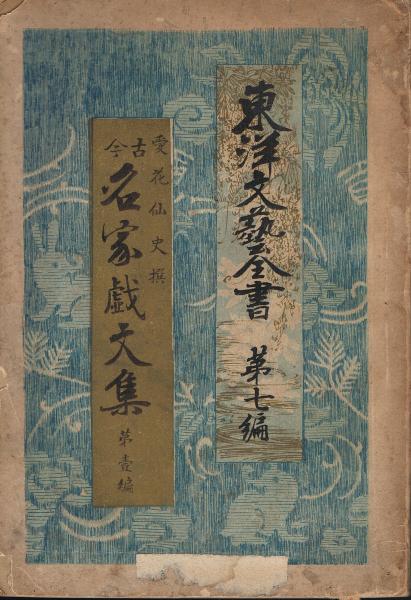 東洋文藝全書 第七編
愛花仙史撰
古今
名家戯文集
第壹編